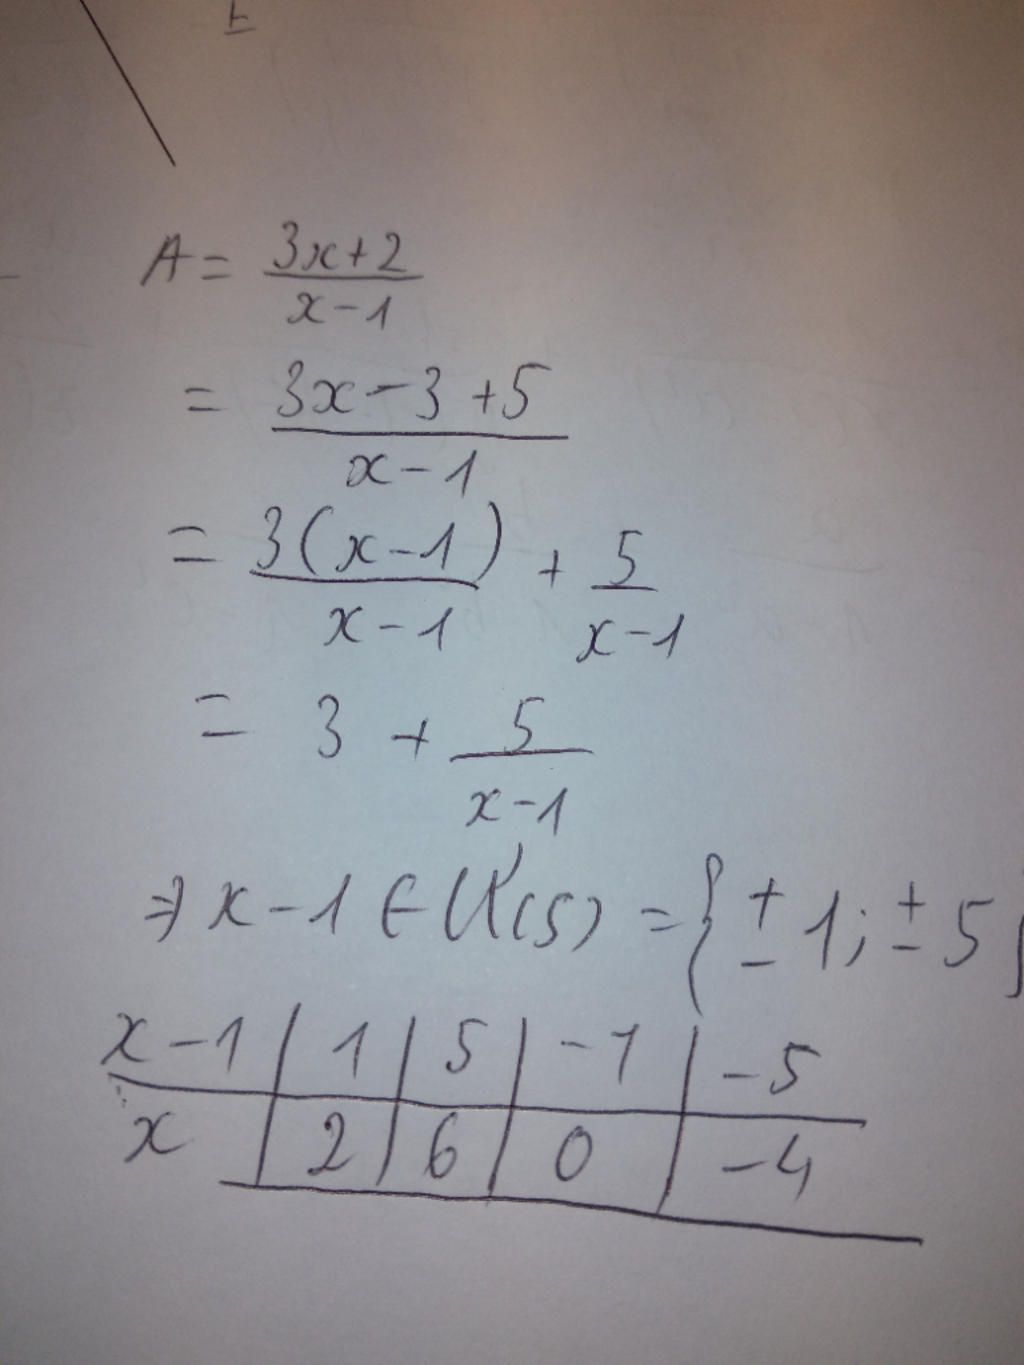 A = \frac{3x+2}{x-1}
= \frac{3x-3+5}{x-1}
= \frac{3(x-1)}{x-1} + \frac{5}{x-1}
= 3 + \frac{5}{x-1}
⇒ x-1 ∈ Ư(5) = {±1; ±5}
x-1 | 1 | 5 | -1 | -5
x | 2 | 6 | 0 | -4